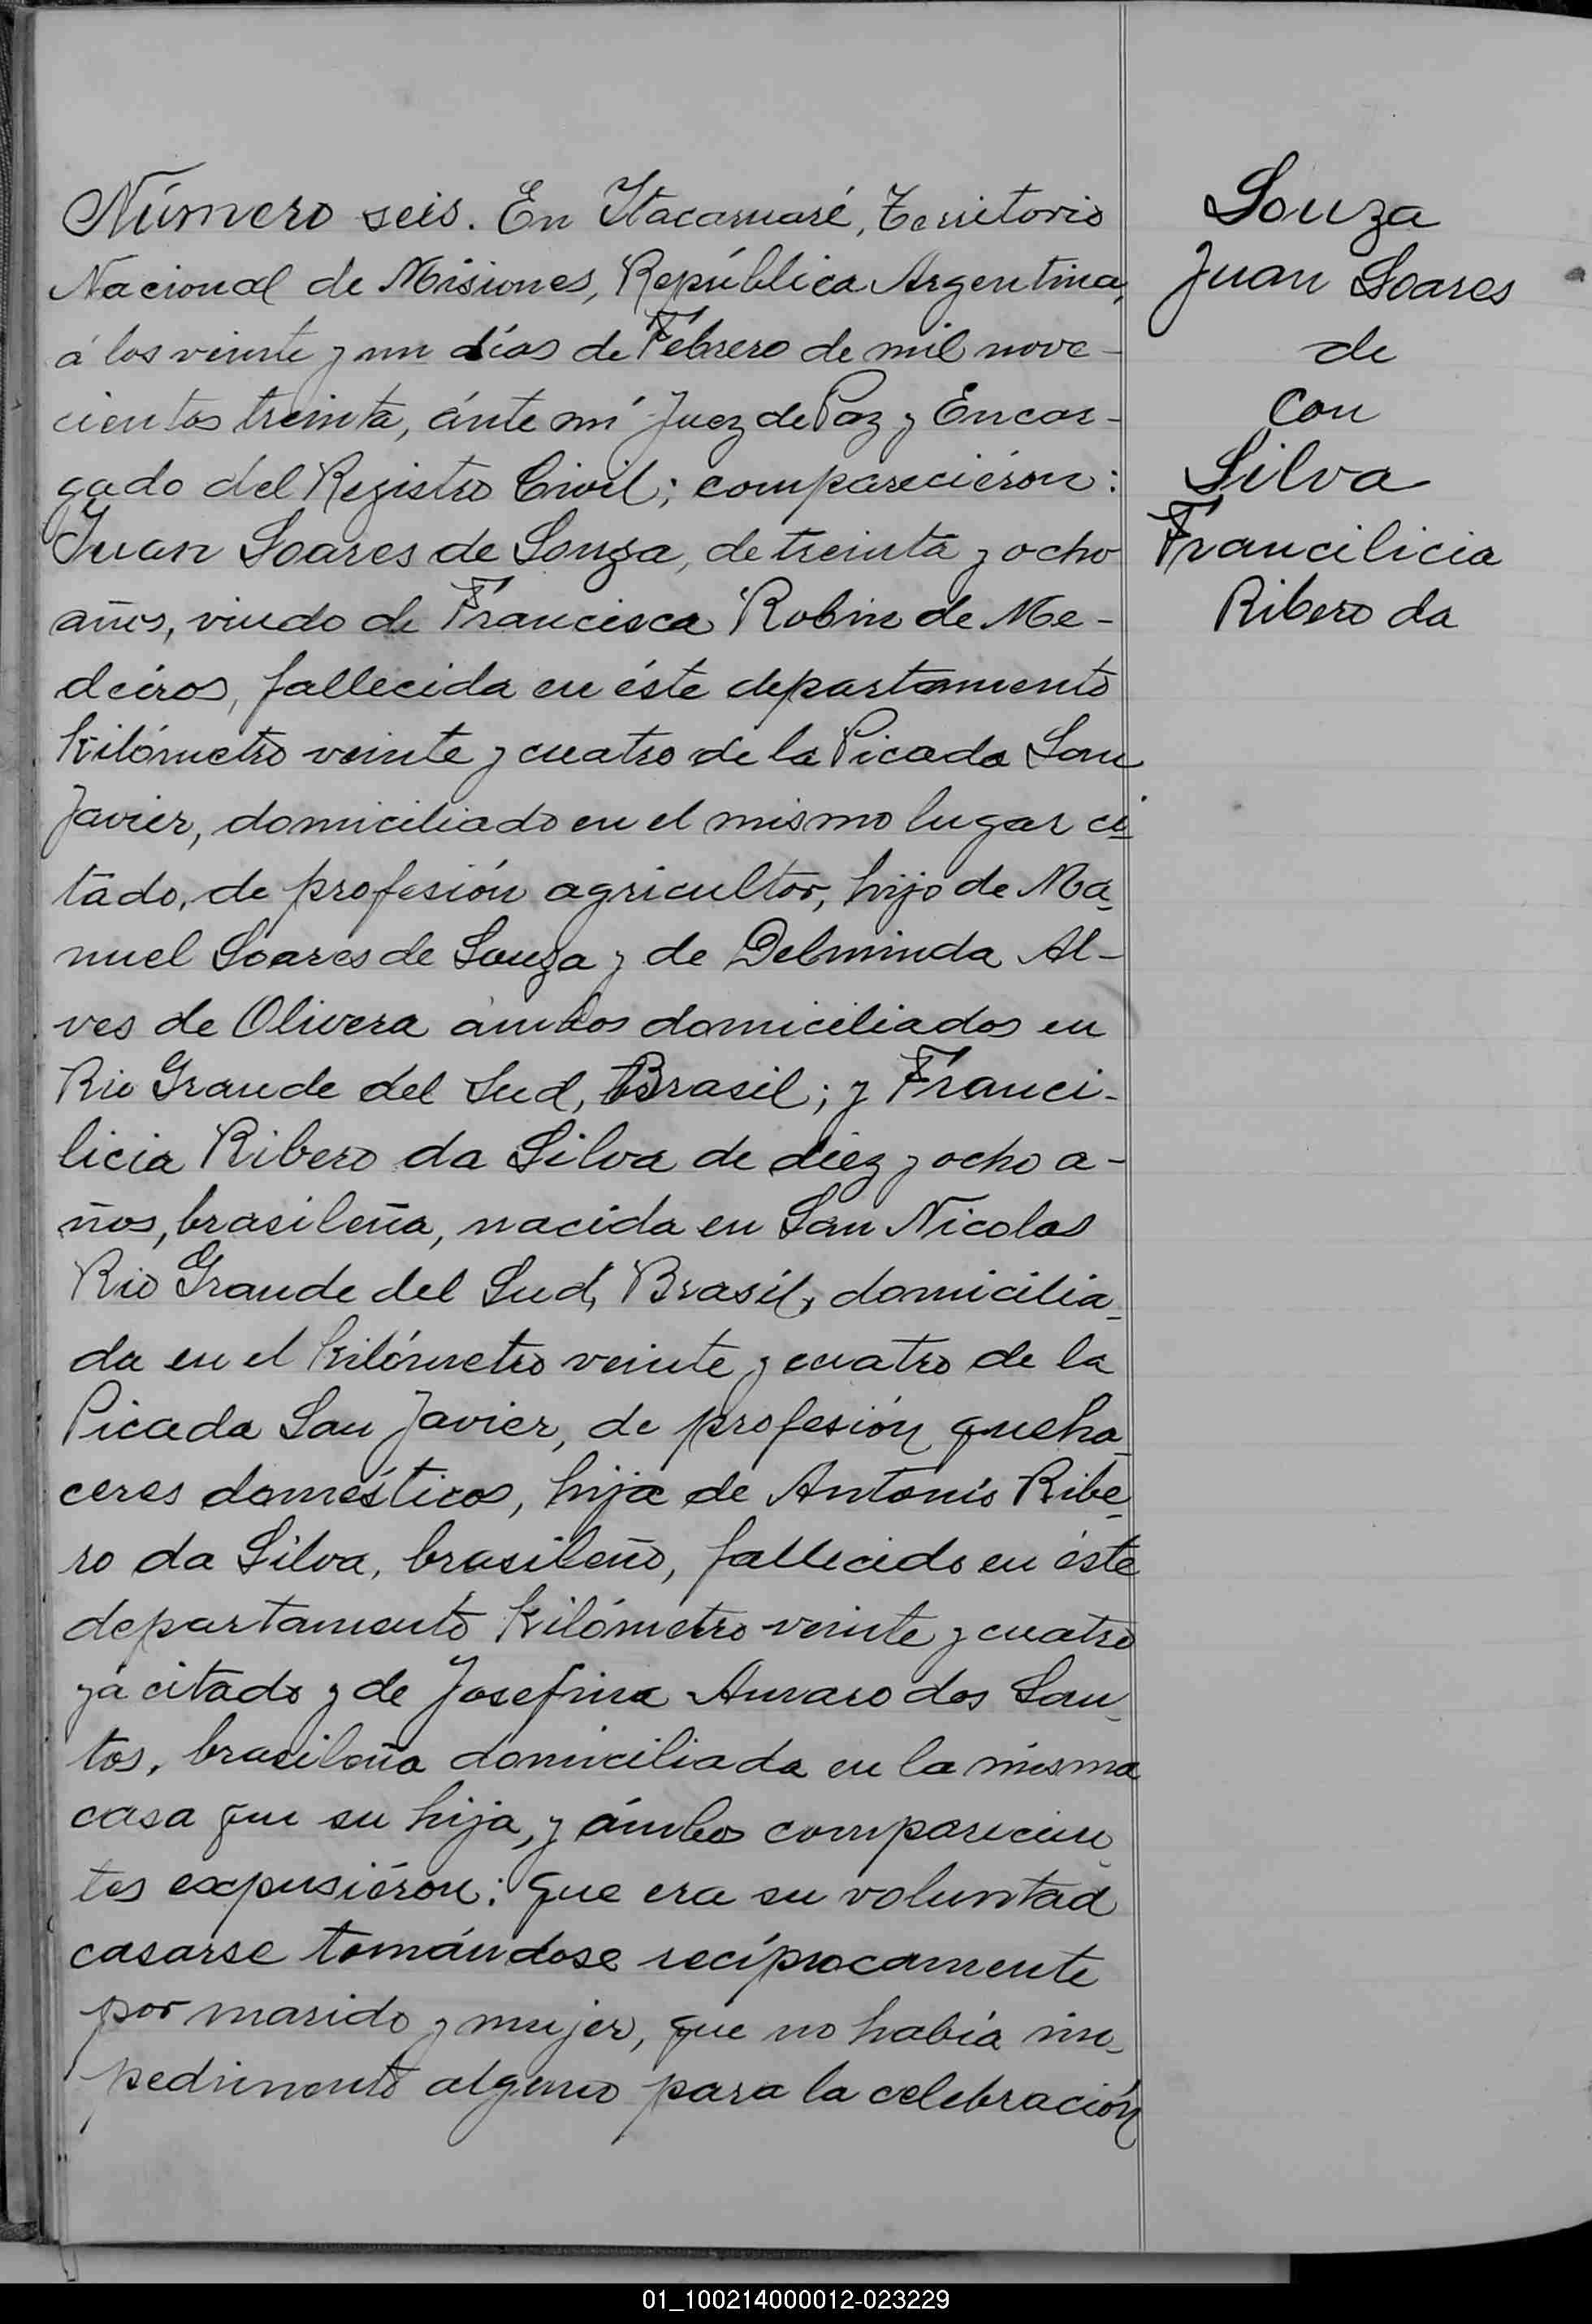 Número seis. En Itacaruaré, Territorio
Nacional de Misiones, República Argentina,
á los veinte y un días de Febrero de mil nove-
cientos treinta, ánte mí Juez de Paz y Encar-
gado del Registro Civil; compareciéron:
Juan Soares de Souza, de treinta y ocho
años, viudo de Francisca Robin de Me-
deiros, fallecida en éste departamento
Kilómetro veinte y cuatro de la Picada San
Javier, domiciliado en el mismo lugar ci-
tado, de profesión agricultor, hijo de Ma-
nuel Soares de Souza y de Delminda Al-
ves de Olivera ámbos domiciliados en
Rio Grande del Sud, Brasil; y Franci-
licia Ribero da Silva de diez y ocho a-
ños, brasileña, nacida en San Nicolas
Rio Grande del Sud, Brasil, domicilia-
da en el Kilómetro veinte y cuatro de la
Picada San Javier, de profesión queha-
ceres domésticos, hija de Antonio Ribe-
ro da Silva, brasileño, fallecido en éste
departamento Kilómetro veinte y cuatro
yá citado y de Josefina Amaro dos San-
tos, brasileña domiciliada en la misma
casa que su hija, y ámbos comparecien-
tes expusiéron: que era su voluntad
casarse tomándose recíprocamente
por marido y mujer, que no había im-
pedimento alguno para la celebración
Souza
Juan Soares
de
con
Silva
Francilicia
Ribero da
01_100214000012-023229